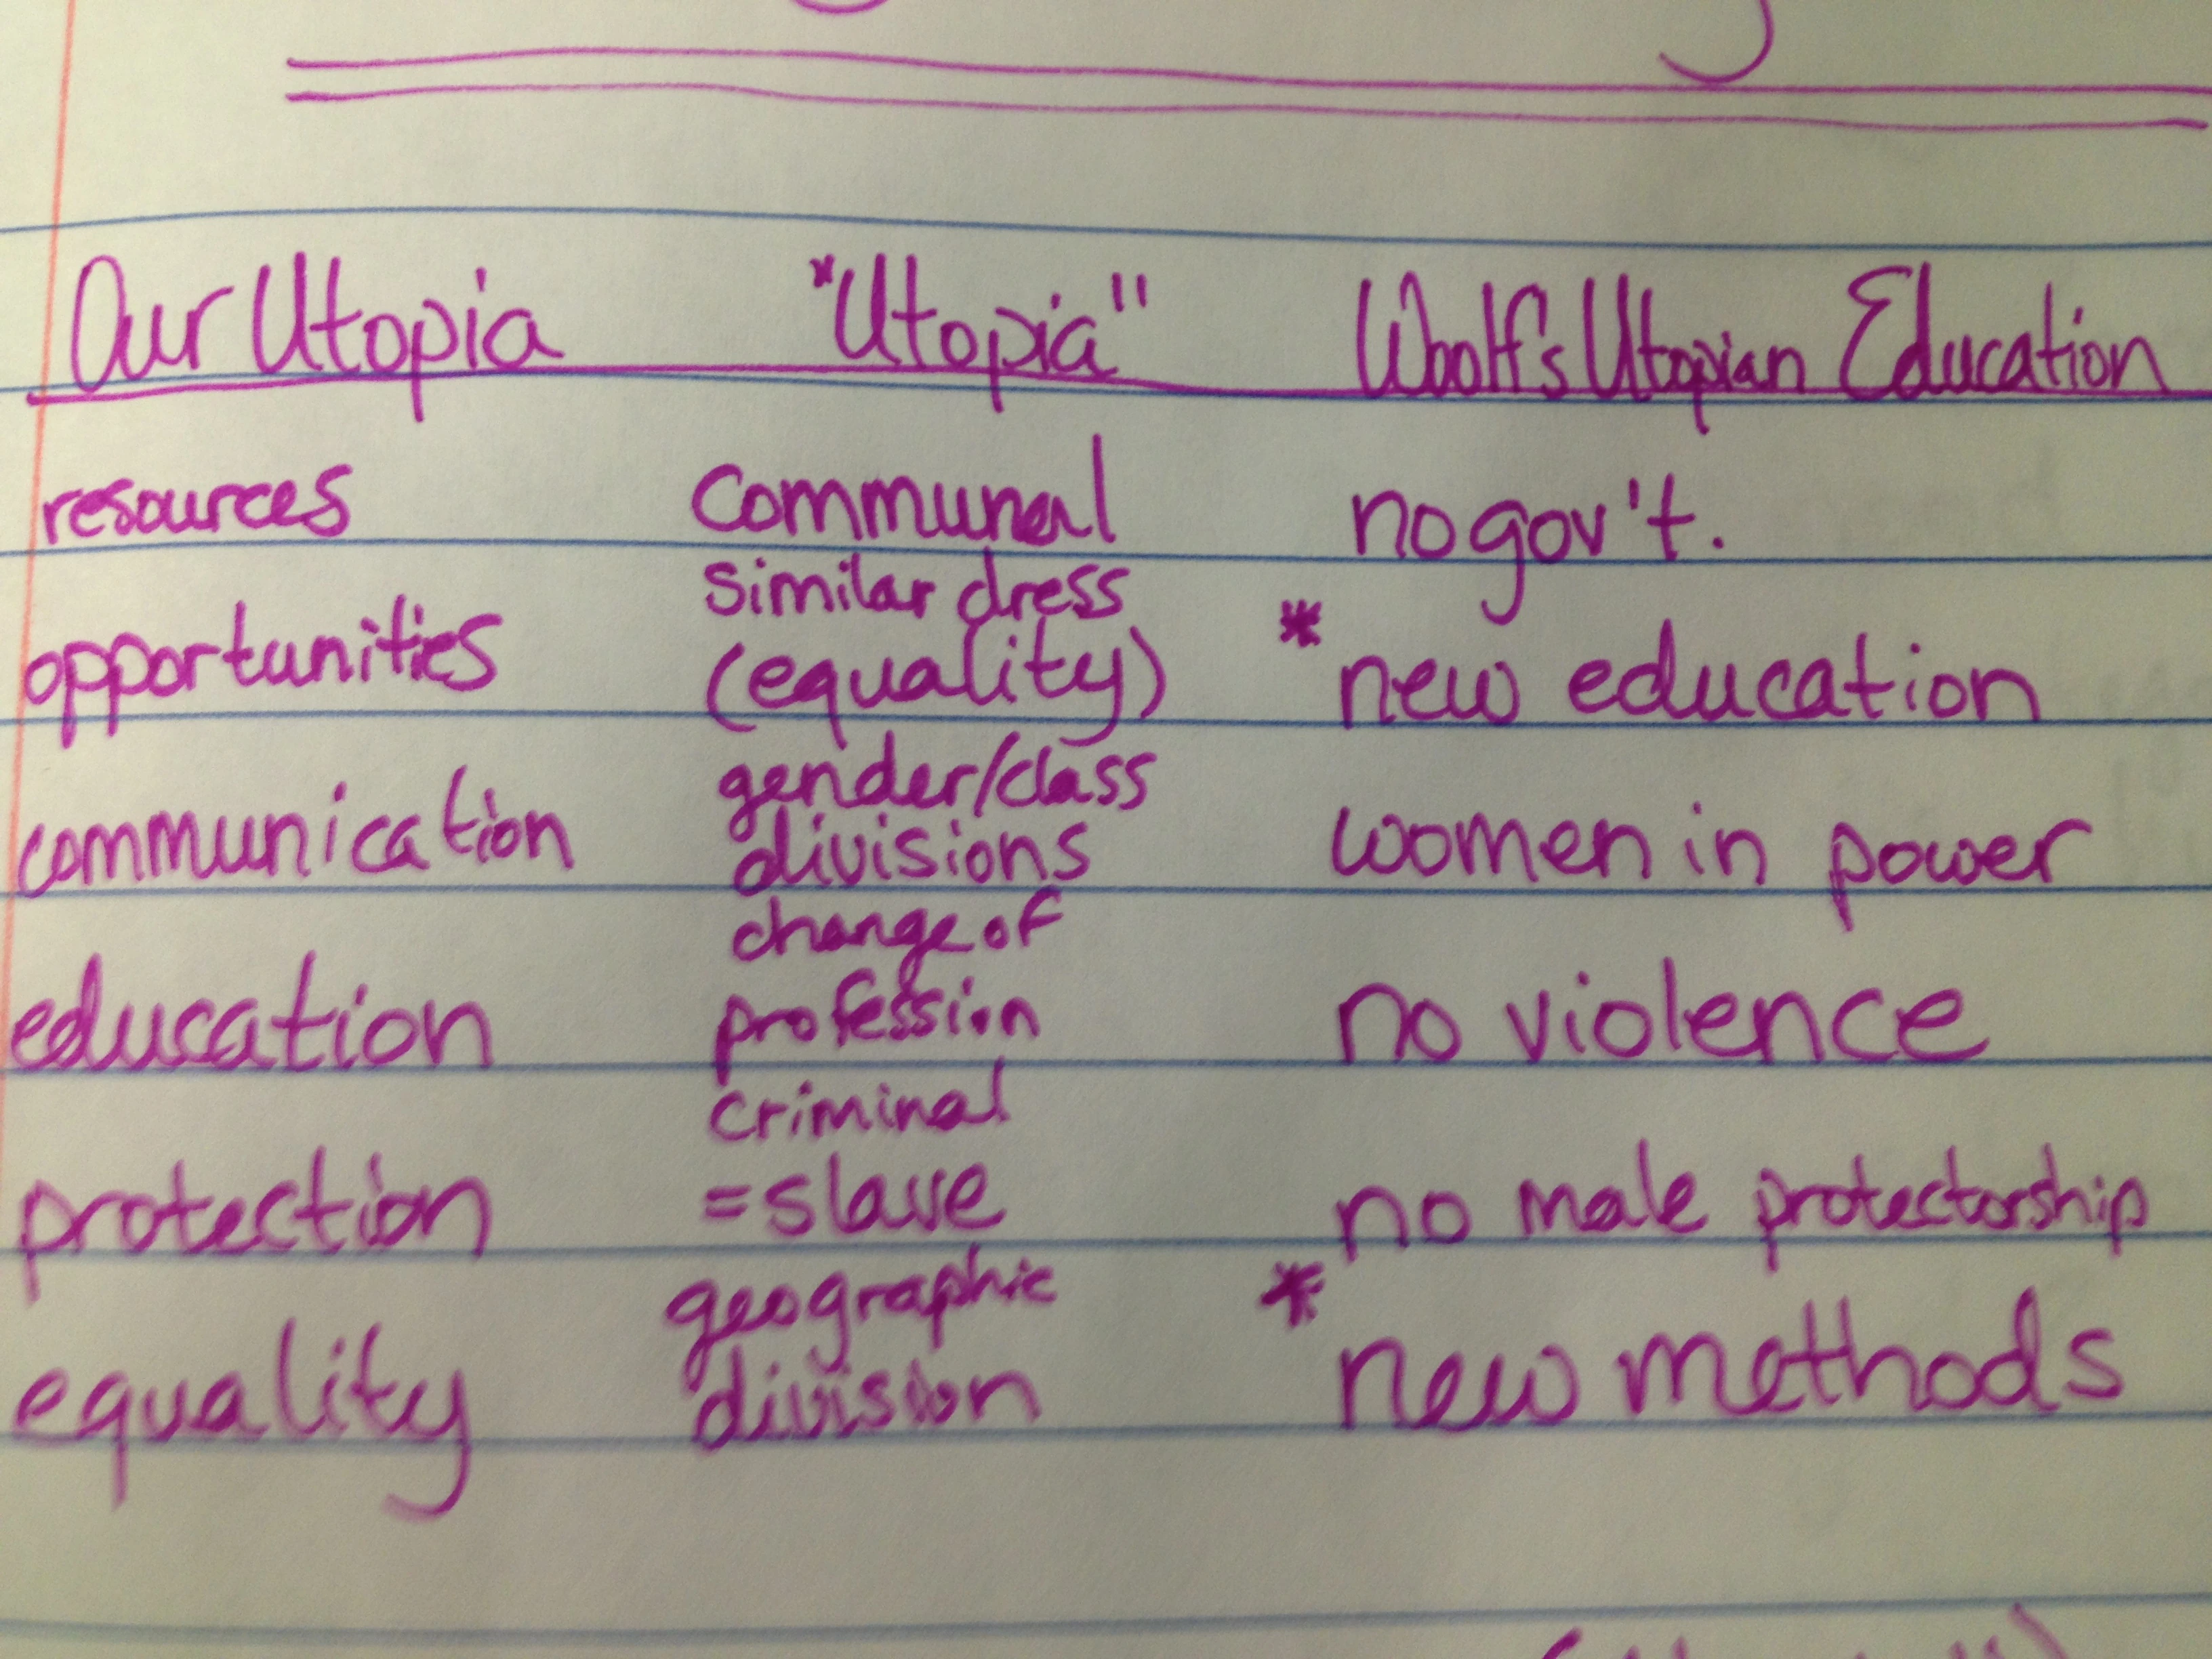 Our Utopia "Utopia" Woolf's Utopian Education
resources communal no gov't.
similar dress
opportunities (equality) * new education
gender/class
communication divisions women in power
change of
education profession no violence
criminal
protection =slave no male protectorship
geographic
equality division * new methods